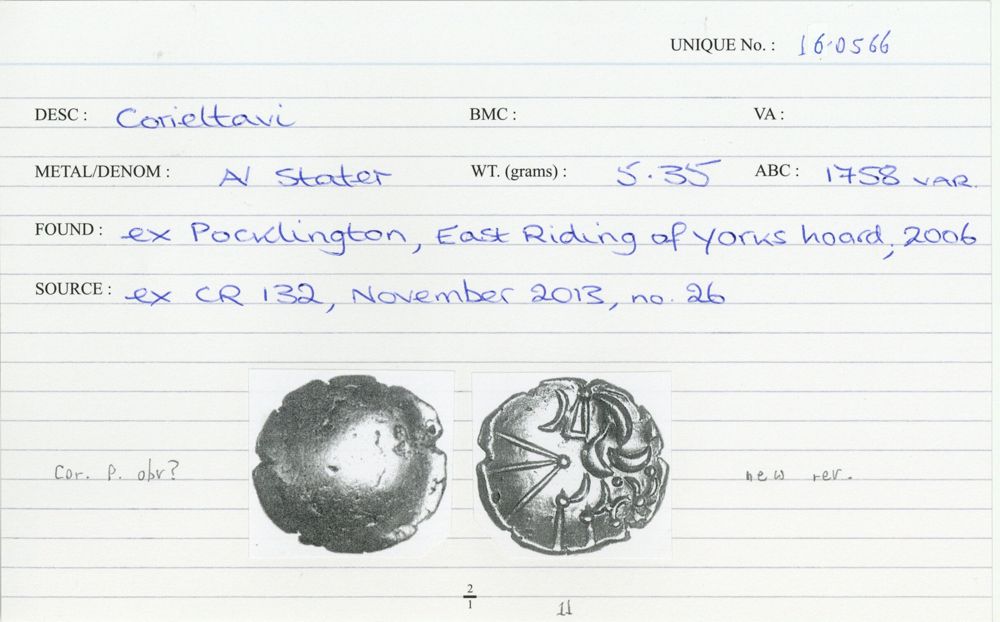 UNIQUE No. : 16-0566
DESC : Corieltavi BMC : VA :
METAL/DENOM : N Stater WT. (grams) : 5.35 ABC : 1758 VAR.
FOUND : ex Pocklington, East Riding of Yorks hoard, 2006
SOURCE : ex CR 132, November 2013, no. 26
Cor. P. obv? new rev.
2
1
11